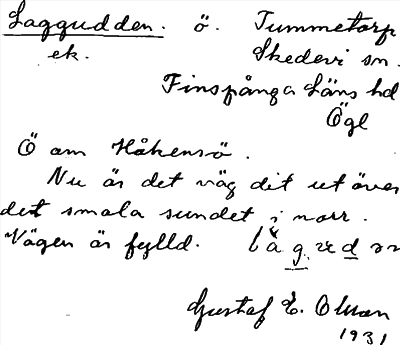 Laggudden. ö. Tummetorp
ek. Skedevi sn.
Finspånga Läns hd
Ögl
Ö om Håkensö.
Nu är det väg dit ut över
det smala sundet i norr.
Vägen är fylld.
Gustaf E. Olson
1931